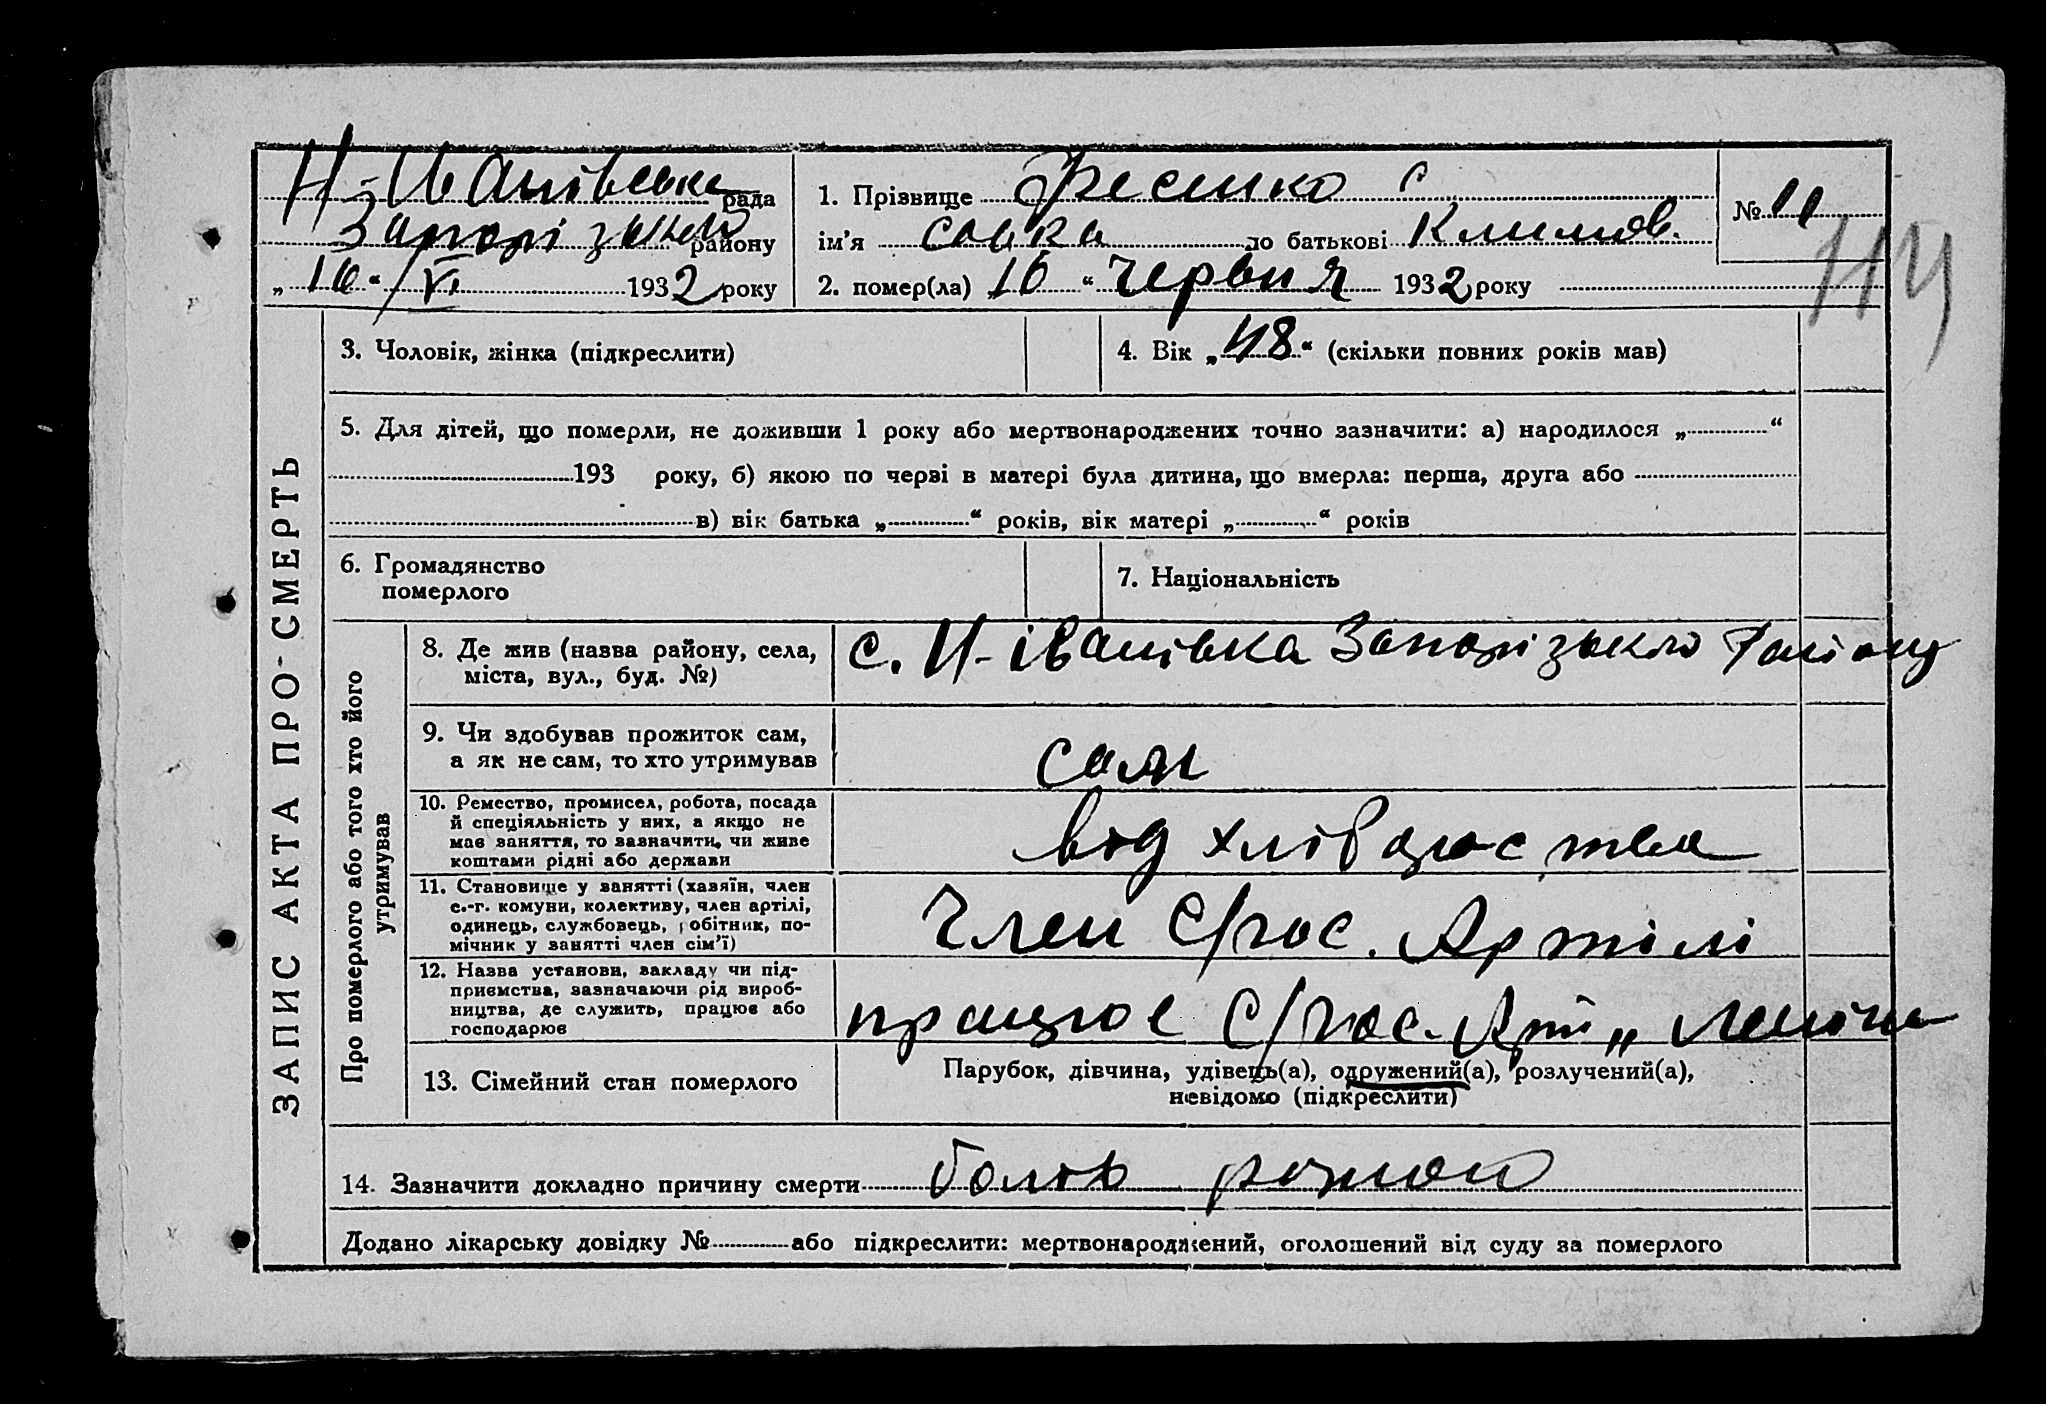 ЗАПИС АКТА ПРО СМЕРТЬ
Н-Іванівська рада
Запорізького району
„16“ VI 1932 року
1. Прізвище Фесенко С
ім’я Савка по батькові Климов.
№ 11
114
2. помер(ла) „16“ Червня 1932 року
3. Чоловік, жінка (підкреслити)
4. Вік „48“ (скільки повних років мав)
5. Для дітей, що померли, не доживши 1 року або мертвонароджених точно зазначити: а) народилося „ “
193 року, б) якою по черзі в матері була дитина, що вмерла: перша, друга або
в) вік батька „ “ років, вік матері „ “ років
6. Громадянство
померлого
7. Національність
Про померлого або того хто його
утримував
8. Де жив (назва району, села,
міста, вул., буд. №)
с. Н-Іванівка Запорізького Району
9. Чи здобував прожиток сам,
а як не сам, то хто утримував
сам
10. Ремество, промисел, робота, посада
й спеціяльність у них, а якщо не
має заняття, то зазначити, чи живе
коштами рідні або держави
від хлібороства
11. Становище у занятті (хазяїн, член
с.-г. комуни, колективу, член артілі,
одинець, службовець, робітник, по-
мічник у занятті член сім’ї)
Член С/гос. Артілі
12. Назва установи, закладу чи під-
приємства, зазначаючи рід вироб-
ництва, де служить, працює або
господарює
працює С/гос. Арті „Леніна
13. Сімейний стан померлого
Парубок, дівчина, удівець(а), одружений(а), розлучений(а),
невідомо (підкреслити)
14. Зазначити докладно причину смерти
Додано лікарську довідку № або підкреслити: мертвонароджений, оголошений від суду за померлого